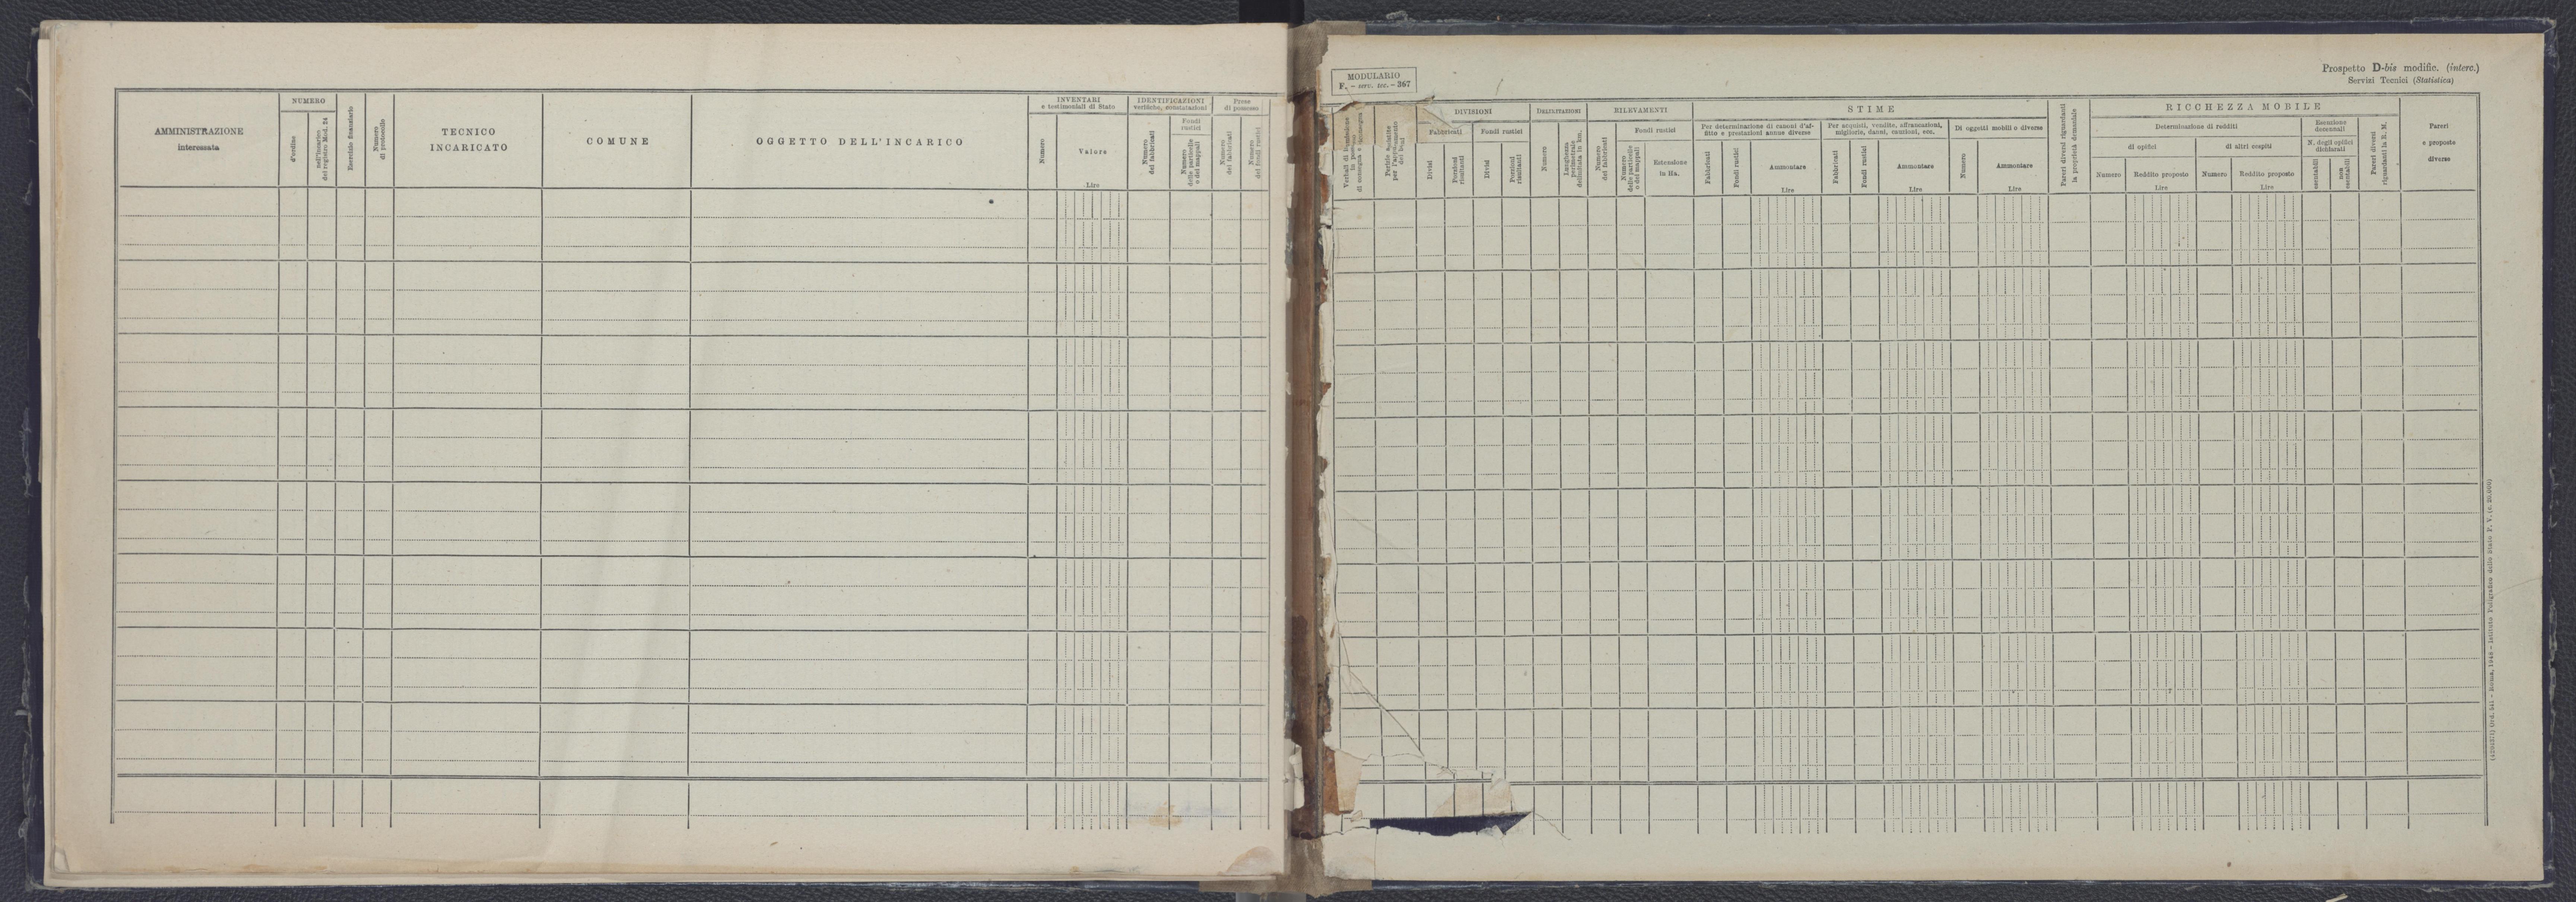 AMMINISTRAZIONE
interessata
NUMERO
d'ordine
nell'incarico
del registro Mod. 24
Esercizio finanziario
Numero
di protocollo
TECNICO
INCARICATO
COMUNE
OGGETTO DELL'INCARICO
INVENTARI
e testimoniali di Stato
Numero
Valore
Lire
IDENTIFICAZIONI
verifiche, constatazioni
Numero
dei fabbricati
Fondi
rustici
Numero
delle particelle
o dei mappali
Prese
di possesso
Numero
dei fabbricati
Numero
dei fondi rustici
MODULARIO
F. - serv. tec. - 367
Prospetto D-bis modific. (interc.)
Servizi Tecnici (Statistica)
Verbali di
in
di consegna e
Perizie
per
dei
DIVISIONI
Fabbricati
Divisi
Porzioni
risultanti
Fondi rustici
Divisi
Porzioni
risultanti
DELIMITAZIONI
Numero
Lunghezza
perimetrale
delimitata in km.
RILEVAMENTI
Numero
dei fabbricati
Fondi rustici
Numero
delle particelle
o dei mappali
Estensione
in Ha.
STIME
Per determinazione di canoni d'af-
fitto e prestazioni annue diverse
Fabbricati
Fondi rustici
Ammontare
Lire
Per acquisti, vendite, affrancazioni,
migliorie, danni, cauzioni, ecc.
Fabbricati
Fondi rustici
Ammontare
Lire
Di oggetti mobili o diverse
Numero
Ammontare
Lire
Pareri diversi riguardanti
la proprietà demaniale
RICCHEZZA MOBILE
Determinazione di redditi
di opifici
Numero
Reddito proposto
Lire
di altri cespiti
Numero
Reddito proposto
Lire
Esenzione
decennali
N. degli opifici
dichiarati
esentabili
non
esentabili
Pareri diversi
riguardanti la R. M.
Pareri
e proposte
diverse
Roma, 1948 - Istituto Poligrafico dello Stato P. V.